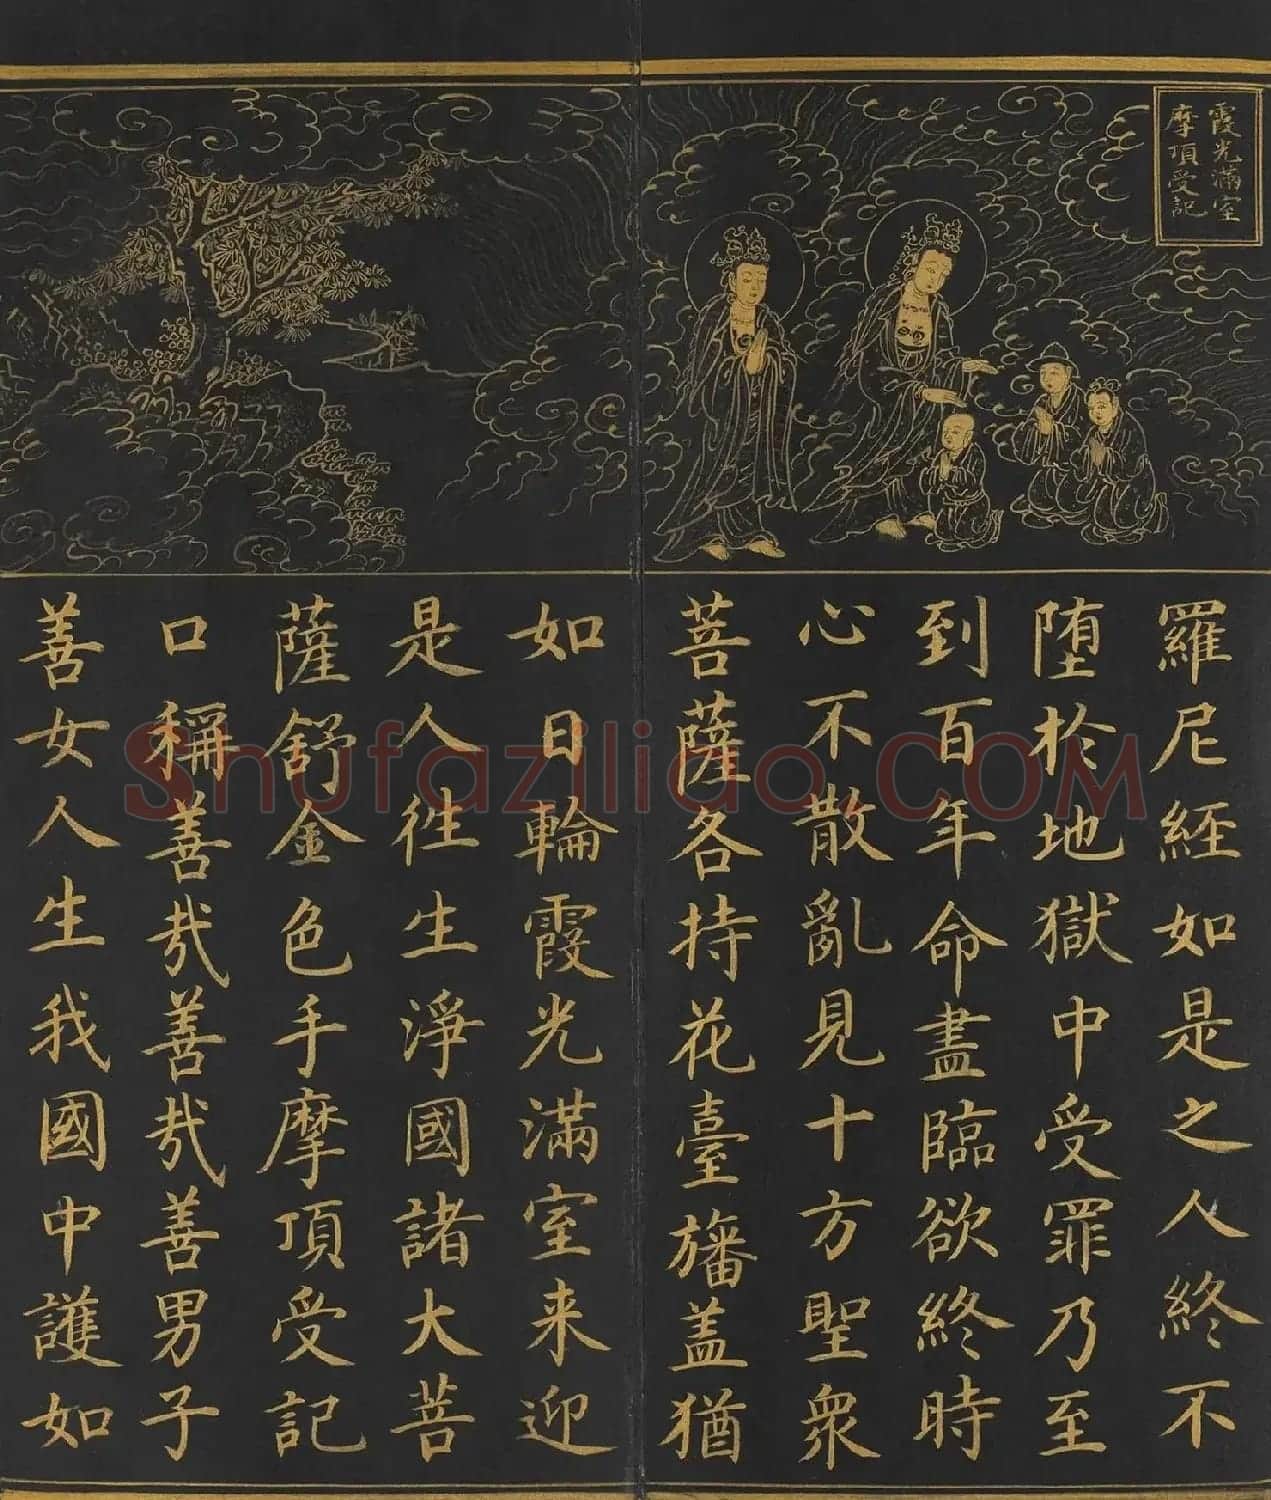 霞光滿室
摩頂受記
羅尼經如是之人終不
堕於地獄中受罪乃至
到百年命盡臨欲終時
心不散亂見十方聖衆
菩薩各持花臺旛盖猶
如日輪霞光滿室来迎
是人徃生淨國諸大菩
薩舒金色手摩頂受記
口稱善哉善哉善男子
善女人生我國中護如
Shufaziliao.COM